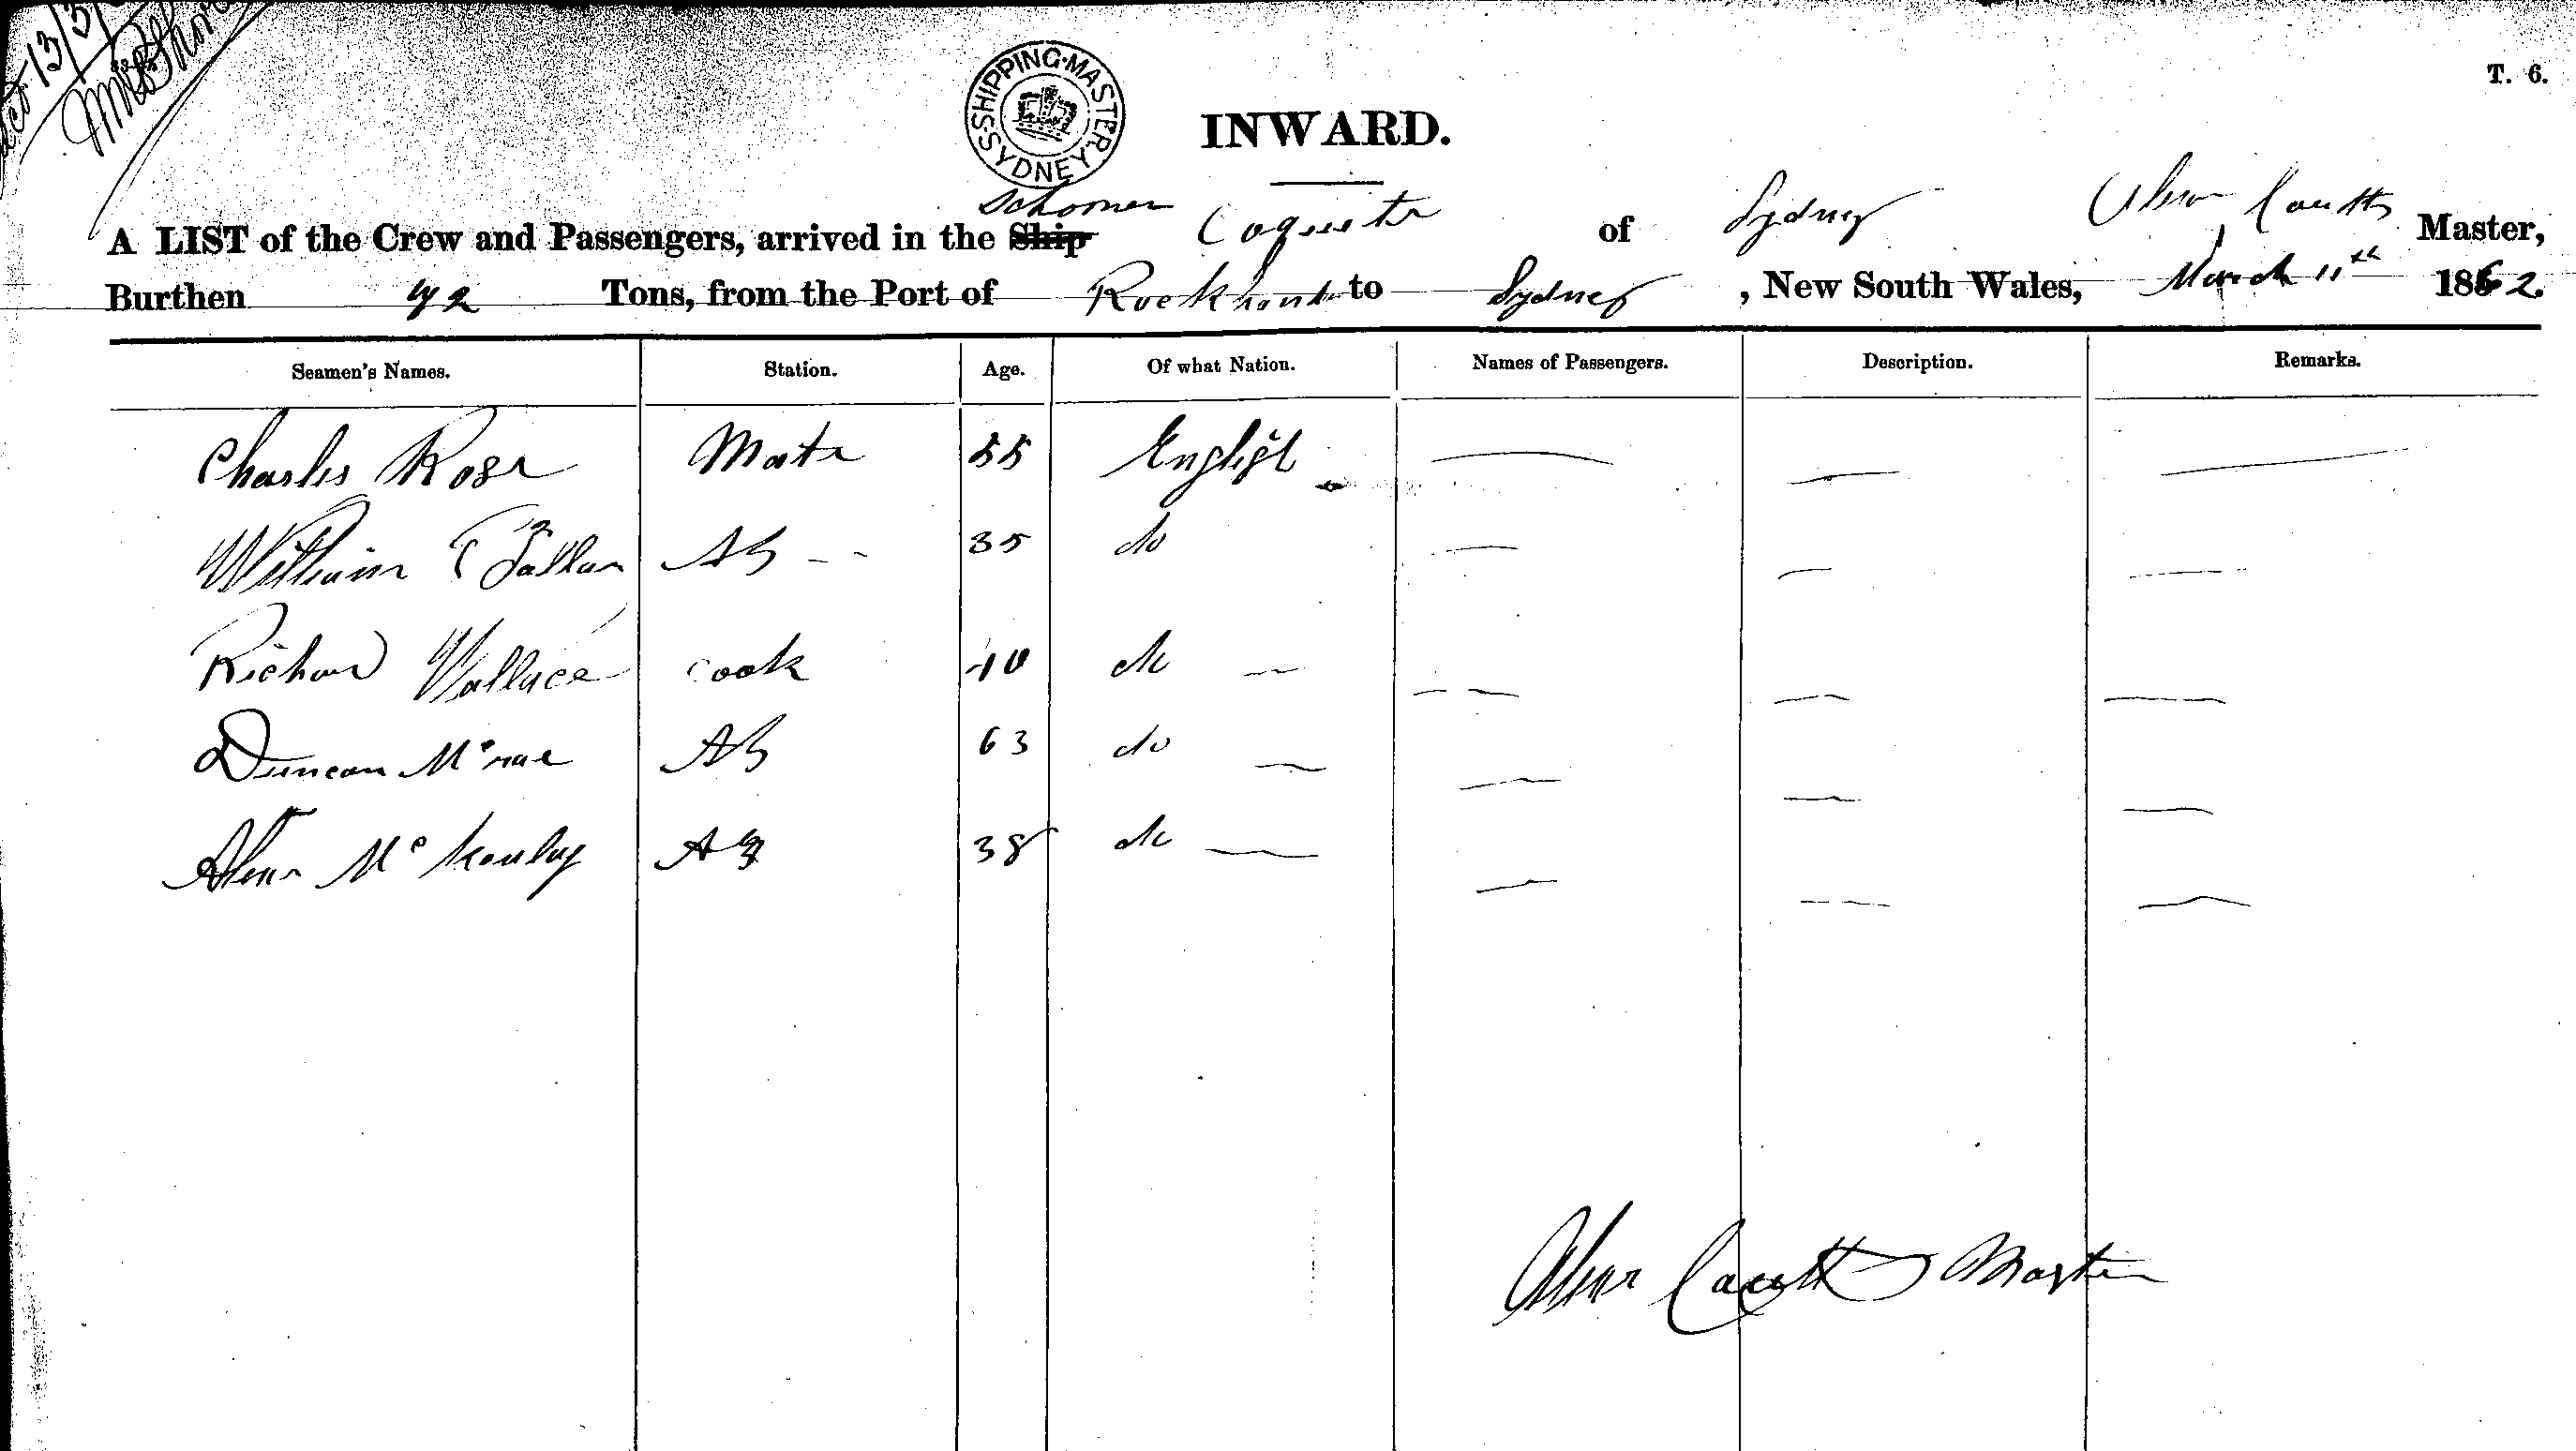 13/3/
T. 6.
SHIPPING MASTER SYDNEY
INWARD.
Schooner
A LIST of the Crew and Passengers, arrived in the Ship Coquette of Sydney Alexr Coutts Master,
Burthen 92 Tons, from the Port of to Sydney, New South Wales, March 11th 1862.
Seamen's Names. Station. Age. Of what Nation. Names of Passengers. Description. Remarks.
Charles Rose Mate 55 English
William AB 35 do
Richard Wallace cook 40 do
Duncan McRae AB 63 do
Alexr Mc AB 38 do
Alexr Coutts Master